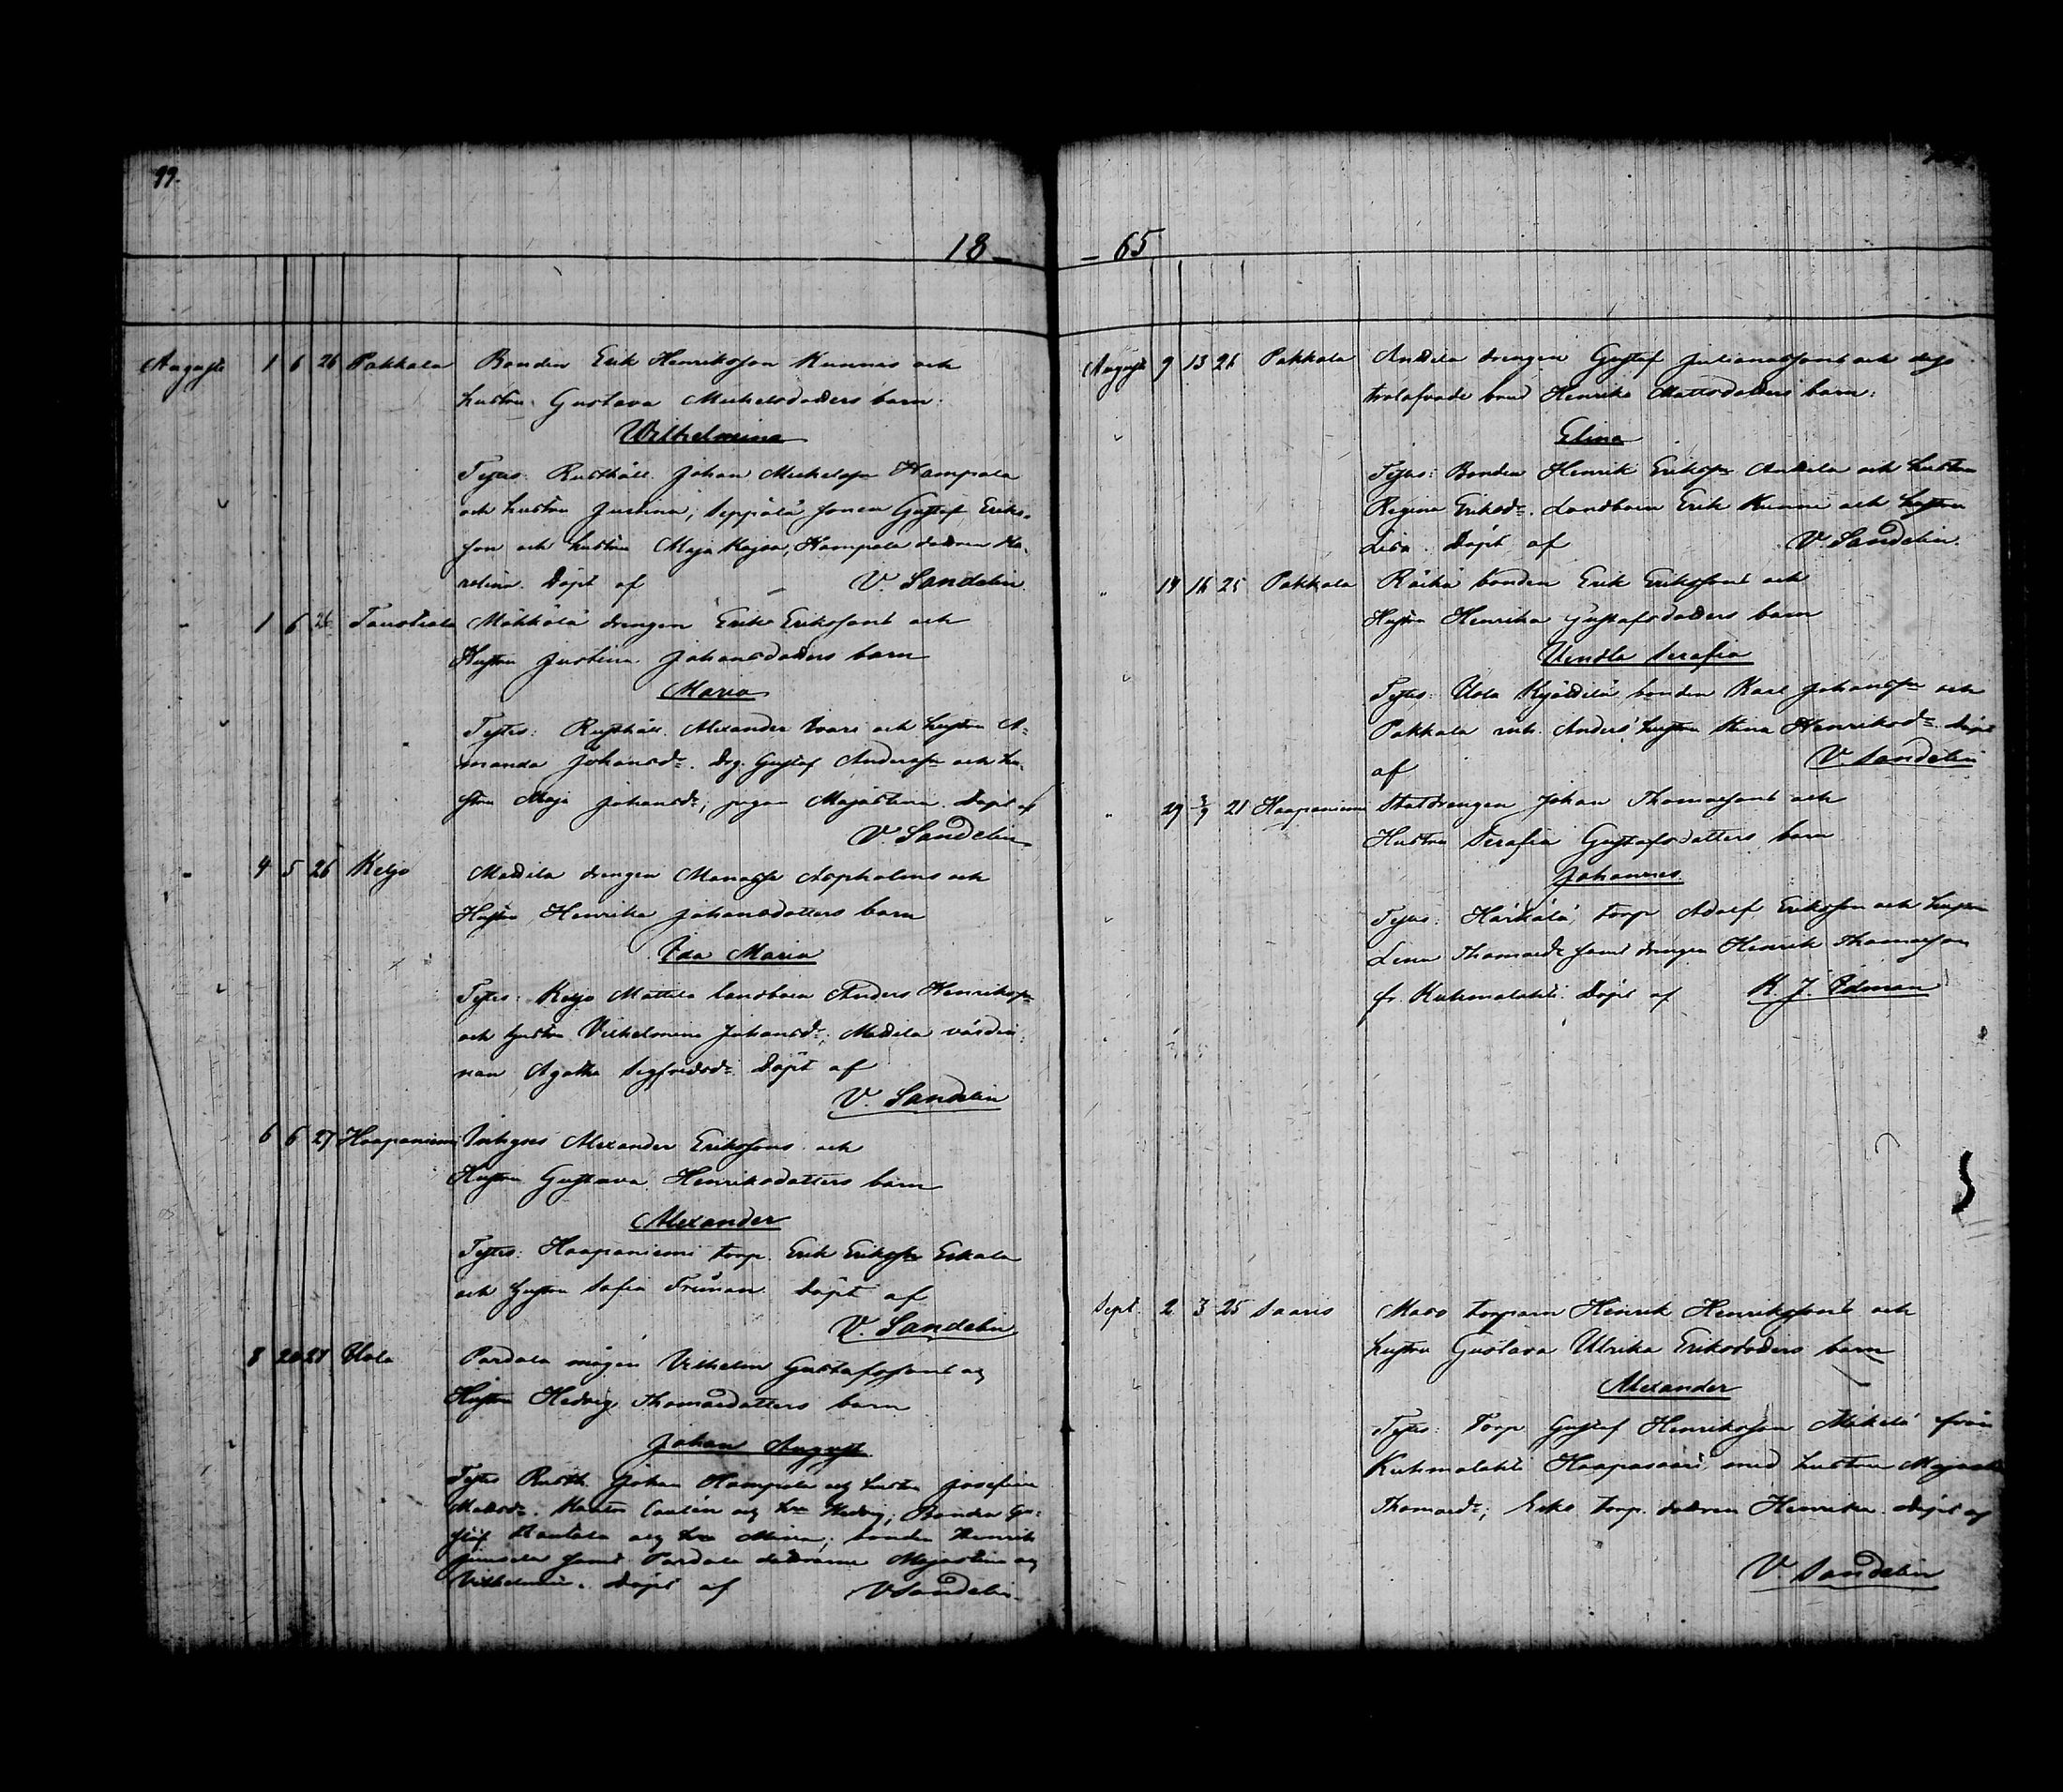 99.
18 – 65
Augusti 1 6 26 Pakkala Bonden Erik Henriksson Kunnas och
hustru Gustava Michelsdotters barn:
Wilhelmina
Testes: Rusthåll. Johan Michelsson Hampala
och hustru Justina, Seppälä sonen Gustaf Eriks-
son och hustru Maja Kajsa, Hampala dottren Ka-
rolina. Döpt af V. Sandelin.
1 6 26 Taustiala Mäkkälä drengen Erik Erikssons och
Hustru Justina Johansdotters barn
Maria
Testes: Rusthåll. Alexander Uvari och hustru A-
manda Johansdr. Drg. Gustaf Andersson och hu-
stru Maja Johansdr, pigan Majastina. Döpt af
V. Sandelin
4 5 26 Keljo Mattila drengen Manasse Aspholms och
Hustru Henrika Johansdotters barn
Ida Maria
Testes: Keljo Mattila landboen Anders Henriksson
och hustru Vilhelmina Johansdr, Mattila värdin-
nan Agatha Sigfridsdr. Döpt af
V. Sandelin
6 6 27 Haapaniemi Inhyses Alexander Erikssons och
Hustru Gustava Henriksdotters barn
Alexander
Testes: Haapaniemi torp. Erik Eriksson Eskola
och hustru Sofia Truman. Döpt af
V. Sandelin
8 20 27 Uola Pardala mågen Vilhelm Gustafssons og
Hustru Hedvig Thomasdotters barn
Johan August
Testes Rusth. Johan Hampala og hustru Josefina
Mattsdr. Kantor Caulén og hru Hedvig, Bonden Gu-
staf Rautala og hru Miina, bonden Henrik
samt Pardala döttrarne Majastina og
Vilhelmina. Döpt af V Sandelin.
Augusti 9 13 26 Pakkala Anttila drengen Gustaf Julianassons och dess
trolofvade brud Henrika Mattsdotters barn:
Elina
Testes: Bonden Henrik Eriksson Anttila och hustru
Regina Eriksdr. Landboen Erik Kunni och hustru
Lisa. Döpt af V. Sandelin.
14 16 25 Pakkala Räikä bonden Erik Erikssons och
Hustru Henrika Gustafsdotters barn
Vendla Serafia
Testes: Uola Kyöttilä bonden Karl Johansson och
Pakkala inh. Anders hustru Stina Henriksdr. Döpt
af V. Sandelin
29 3/9 21 Haapaniemi Statdrengen Johan Thomassons och
Hustru Serafia Gustafsdotters barn
Johannes
Testes: Härkälä torp. Adolf Eriksson och hustru
Lena Thomasdr samt drengen Henrik Thomasson
fr. Kuhmalahti. Döpt af K. J. Idman
Sept. 2 3 25 Saaris Maso torparen Henrik Henrikssons och
hustru Gustava Ulrika Eriksdotters barn
Alexander
Testes: Torp. Gustaf Henriksson Mäkelä från
Kuhmalahti Haapasaari med hustru Majastina
Thomasdr, Esko torp. dottren Henrika. Döpt af
V Sandelin